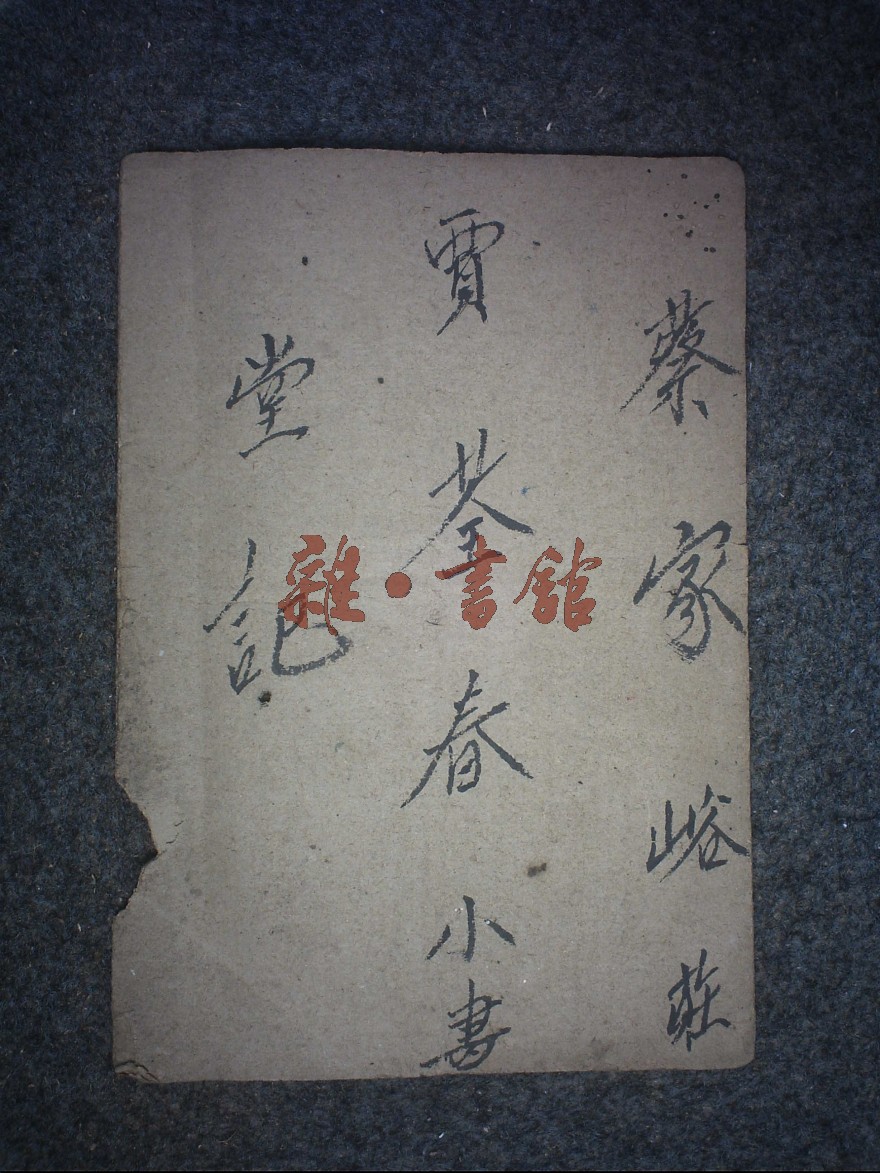 蔡家峪莊
賈荃春小書
堂記
雜·書館